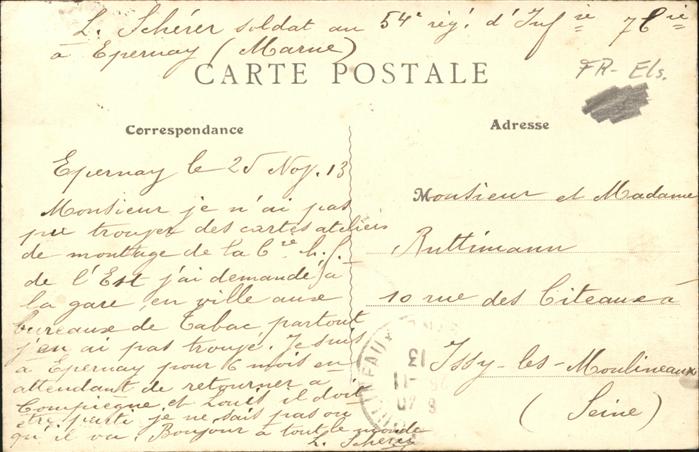 L. Schérer soldat au 54e rég. d'Infie 7 Cie
à Epernay (Marne)
CARTE POSTALE
FR- Els.
Correspondance
Epernay le 25 Nov. 13
Monsieur je n'ai pas
pu trouver des cartes ateliers
de montage de la Cie
de l'Est j'ai demandé à
la gare, en ville aux
bureaux de Tabac, partout
j'en ai pas trouvé. Je suis
à Epernay pour 6 mois en
attendant de retourner à
Compiègne, et Louis il doit
être parti je ne sais pas où
qu'il va. Bonjour à tout le monde
L. Schérer
Adresse
Monsieur et Madame
Ruttimann
10 rue des Citeaux à
Issy-les-Moulineaux
(Seine)